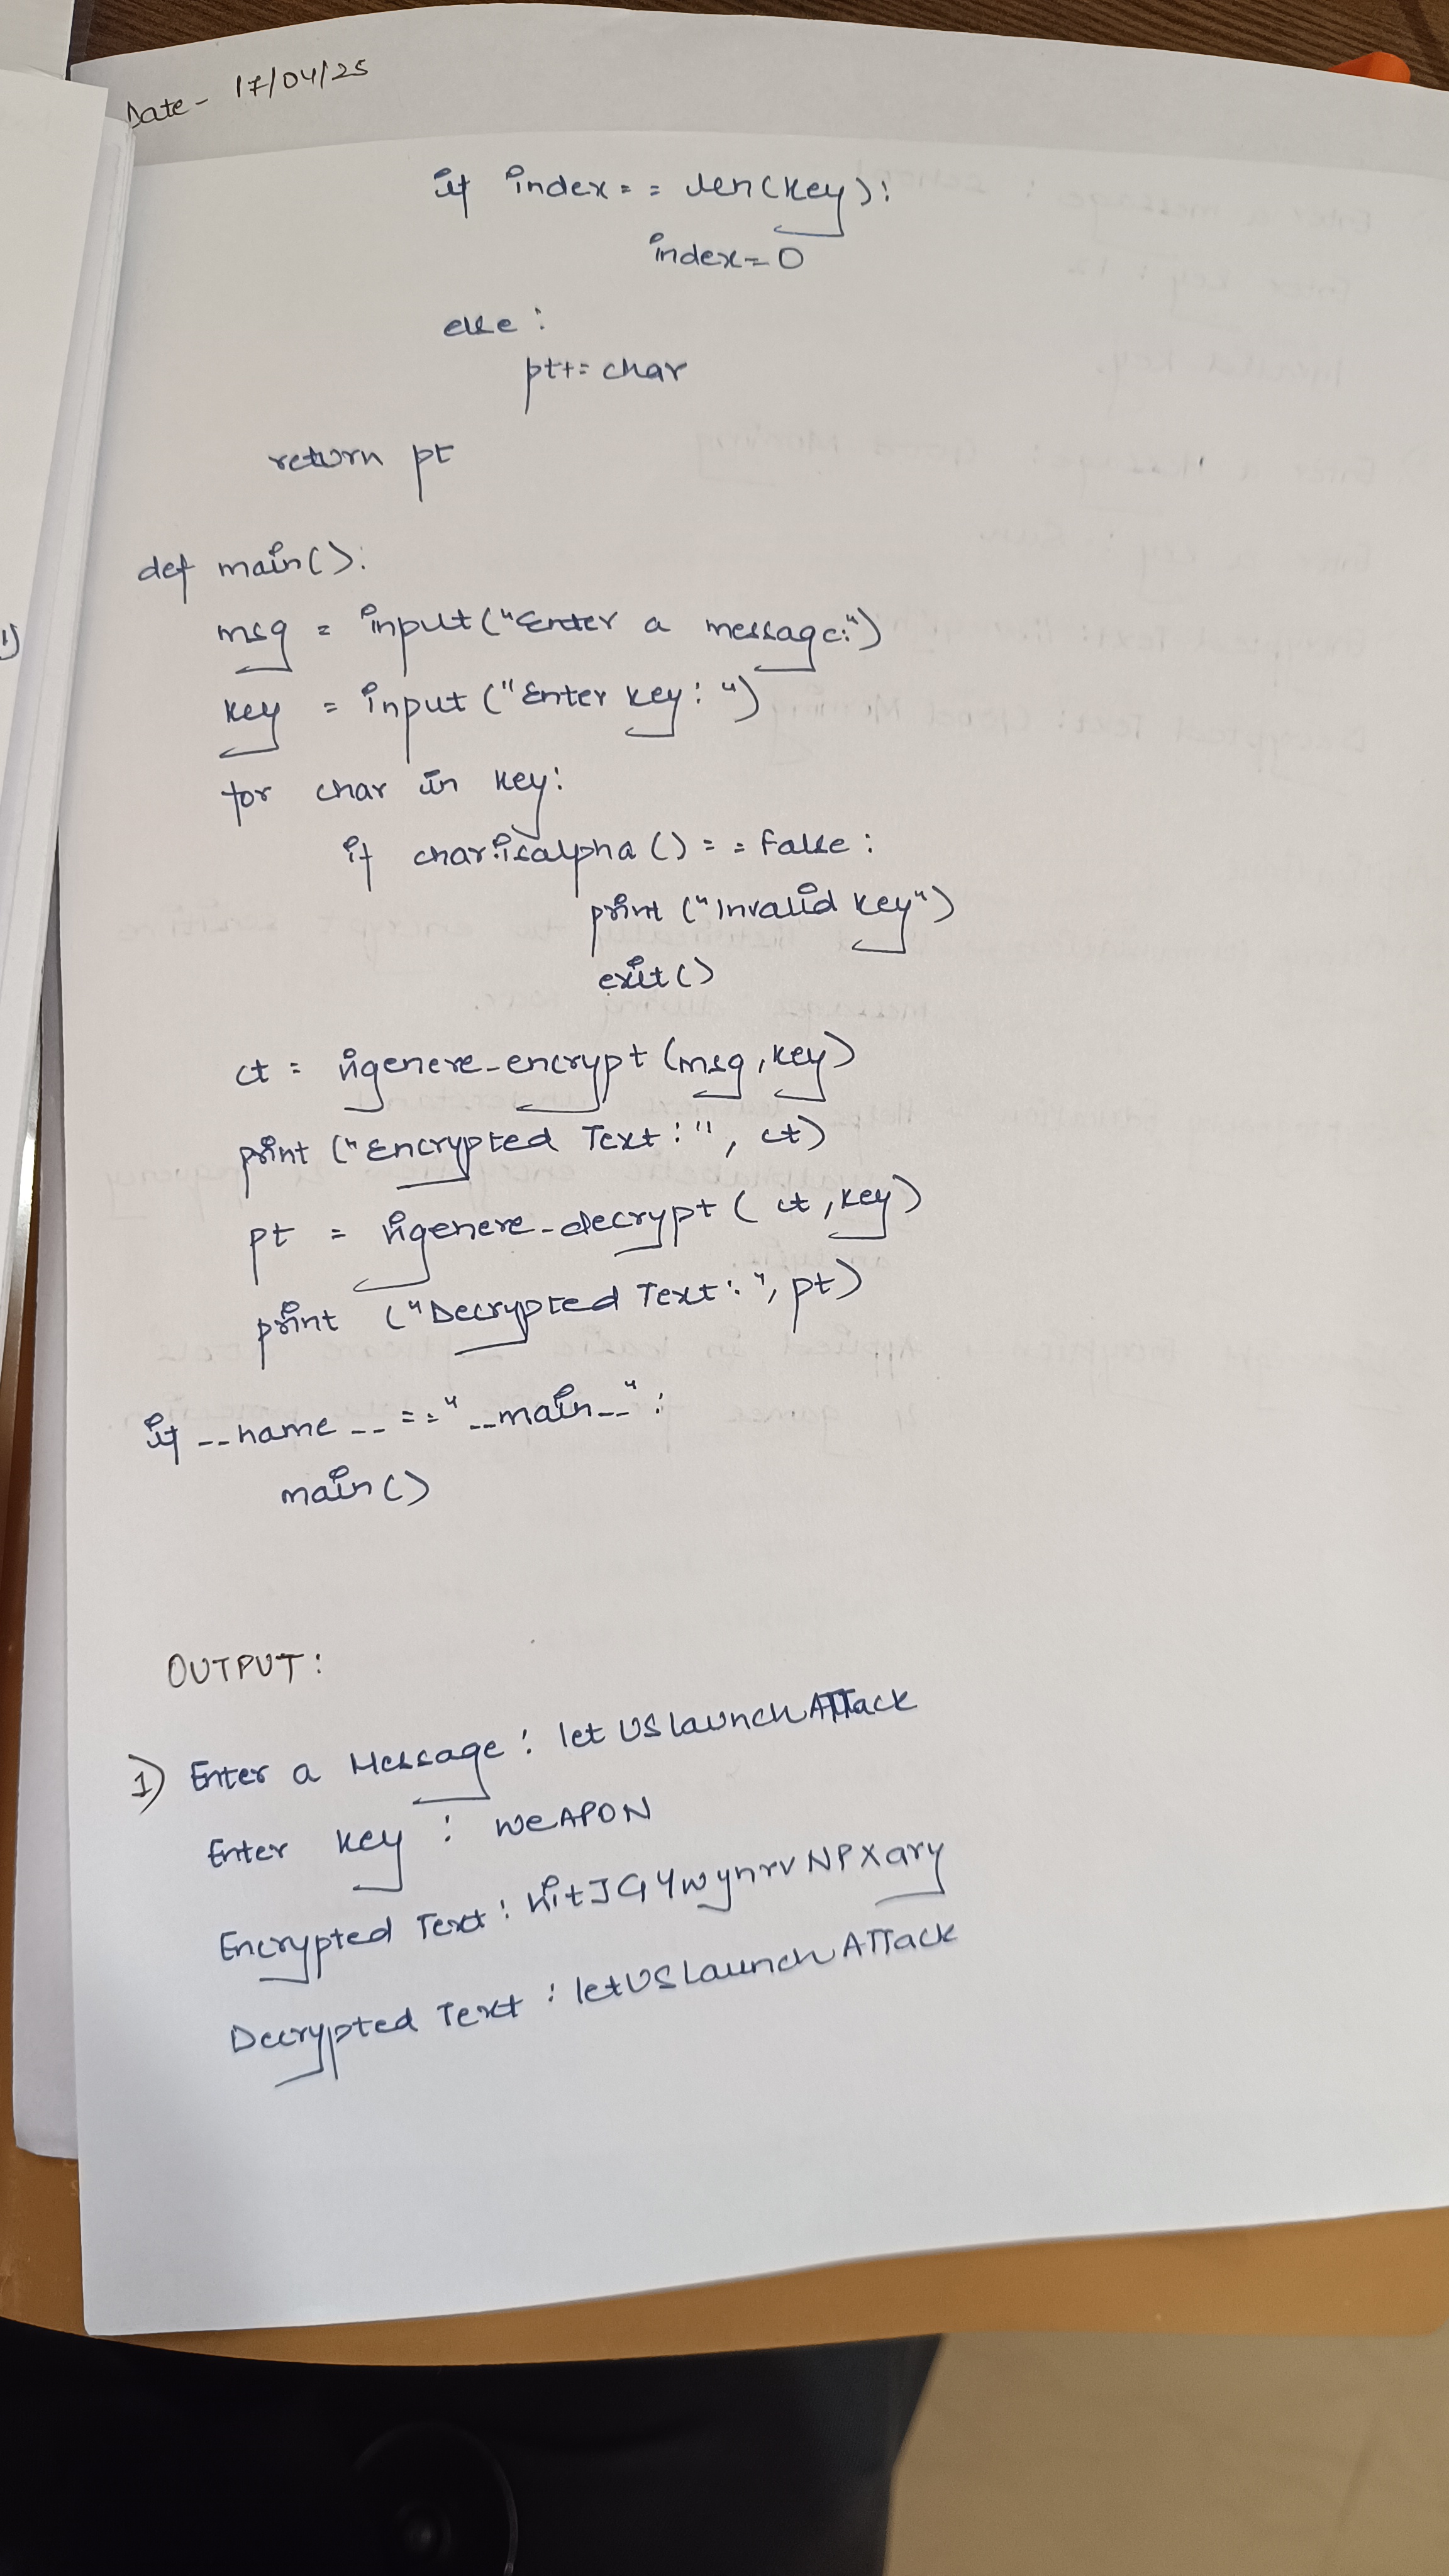 Date - 17/04/25
if index == len(key):
index=0
else:
pt+=char
return pt
def main():
msg = input("Enter a message:")
key = input("Enter key: ")
for char in key:
if char.isalpha() == False:
print ("Invalid key")
exit()
ct = vigenere_encrypt(msg,key)
print ("Encrypted Text:", ct)
pt = vigenere_decrypt(ct,key)
print ("Decrypted Text:", pt)
if __name__ == "__main__":
main()
OUTPUT:
1) Enter a Message: letUSlaunchATTack
Enter key: WeAPON
Encrypted Text: hitJGYwynrvNPXary
Decrypted Text: letUSlaunchATTack